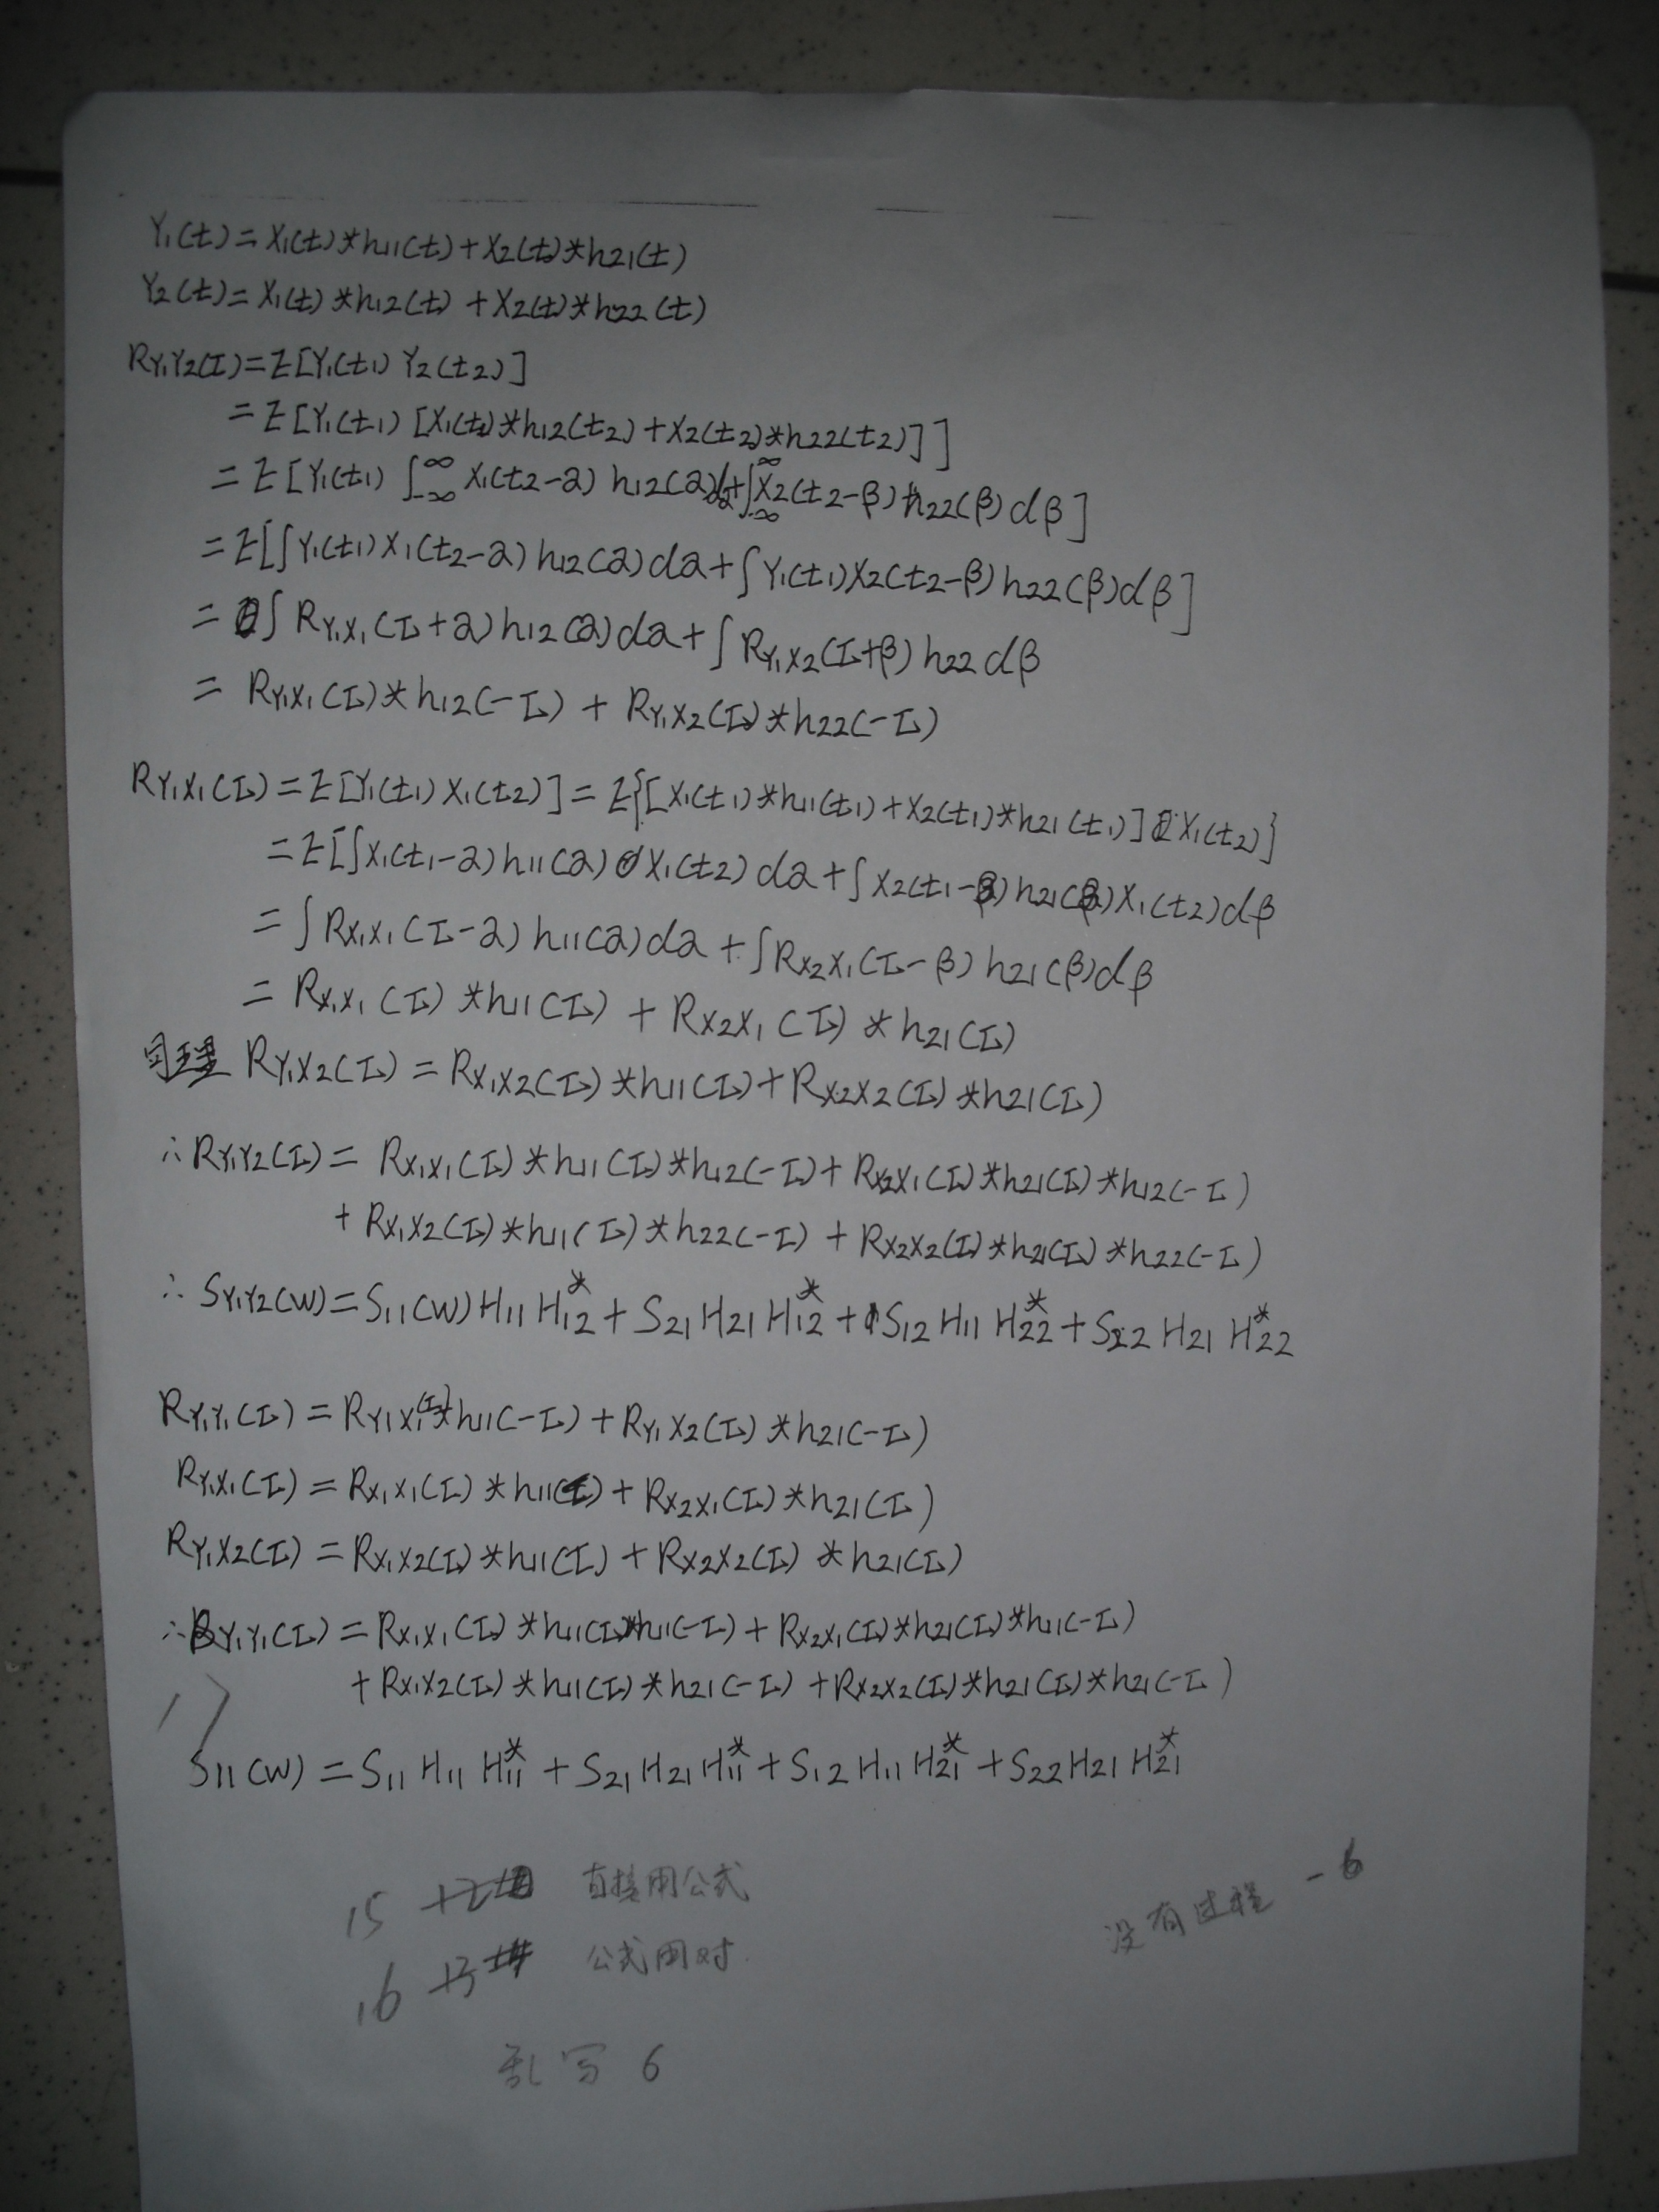 Y1(t)=X1(t)*h11(t)+X2(t)*h21(t)
Y2(t)=X1(t)*h12(t)+X2(t)*h22(t)
RY1Y2(τ)=E[Y1(t1) Y2(t2)]
=E[Y1(t1) [X1(t2)*h12(t2)+X2(t2)*h22(t2)]]
=E[Y1(t1) ∫-∞^∞ X1(t2-α) h12(α)dα+∫-∞^∞ X2(t2-β) h22(β)dβ]
=E[∫Y1(t1)X1(t2-α) h12(α)dα+∫Y1(t1)X2(t2-β)h22(β)dβ]
=∫RY1X1(τ+α)h12(α)dα+∫RY1X2(τ+β)h22 dβ
=RY1X1(τ)*h12(-τ)+RY1X2(τ)*h22(-τ)
RY1X1(τ)=E[Y1(t1)X1(t2)]=E{[X1(t1)*h11(t1)+X2(t1)*h21(t1)]X1(t2)}
=E[∫X1(t1-α)h11(α)X1(t2)dα+∫X2(t1-β)h21(β)X1(t2)dβ
=∫RX1X1(τ-α)h11(α)dα+∫RX2X1(τ-β)h21(β)dβ
=RX1X1(τ)*h11(τ)+RX2X1(τ)*h21(τ)
同理 RY1X2(τ)=RX1X2(τ)*h11(τ)+RX2X2(τ)*h21(τ)
∴RY1Y2(τ)=RX1X1(τ)*h11(τ)*h12(-τ)+RX2X1(τ)*h21(τ)*h12(-τ)
+RX1X2(τ)*h11(τ)*h22(-τ)+RX2X2(τ)*h21(τ)*h22(-τ)
∴SY1Y2(W)=S11(W)H11H12*+S21H21H12*+S12H11H22*+S22H21H22*
RY1Y1(τ)=RY1X1(τ)*h11(-τ)+RY1X2(τ)*h21(-τ)
RY1X1(τ)=RX1X1(τ)*h11(τ)+RX2X1(τ)*h21(τ)
RY1X2(τ)=RX1X2(τ)*h11(τ)+RX2X2(τ)*h21(τ)
∴RY1Y1(τ)=RX1X1(τ)*h11(τ)*h11(-τ)+RX2X1(τ)*h21(τ)*h11(-τ)
+RX1X2(τ)*h11(τ)*h21(-τ)+RX2X2(τ)*h21(τ)*h21(-τ)
17
S11(W)=S11H11H11*+S21H21H11*+S12H11H21*+S22H21H21*
15 直接用公式
没有过程 -6
16 公式用对
乱写 6